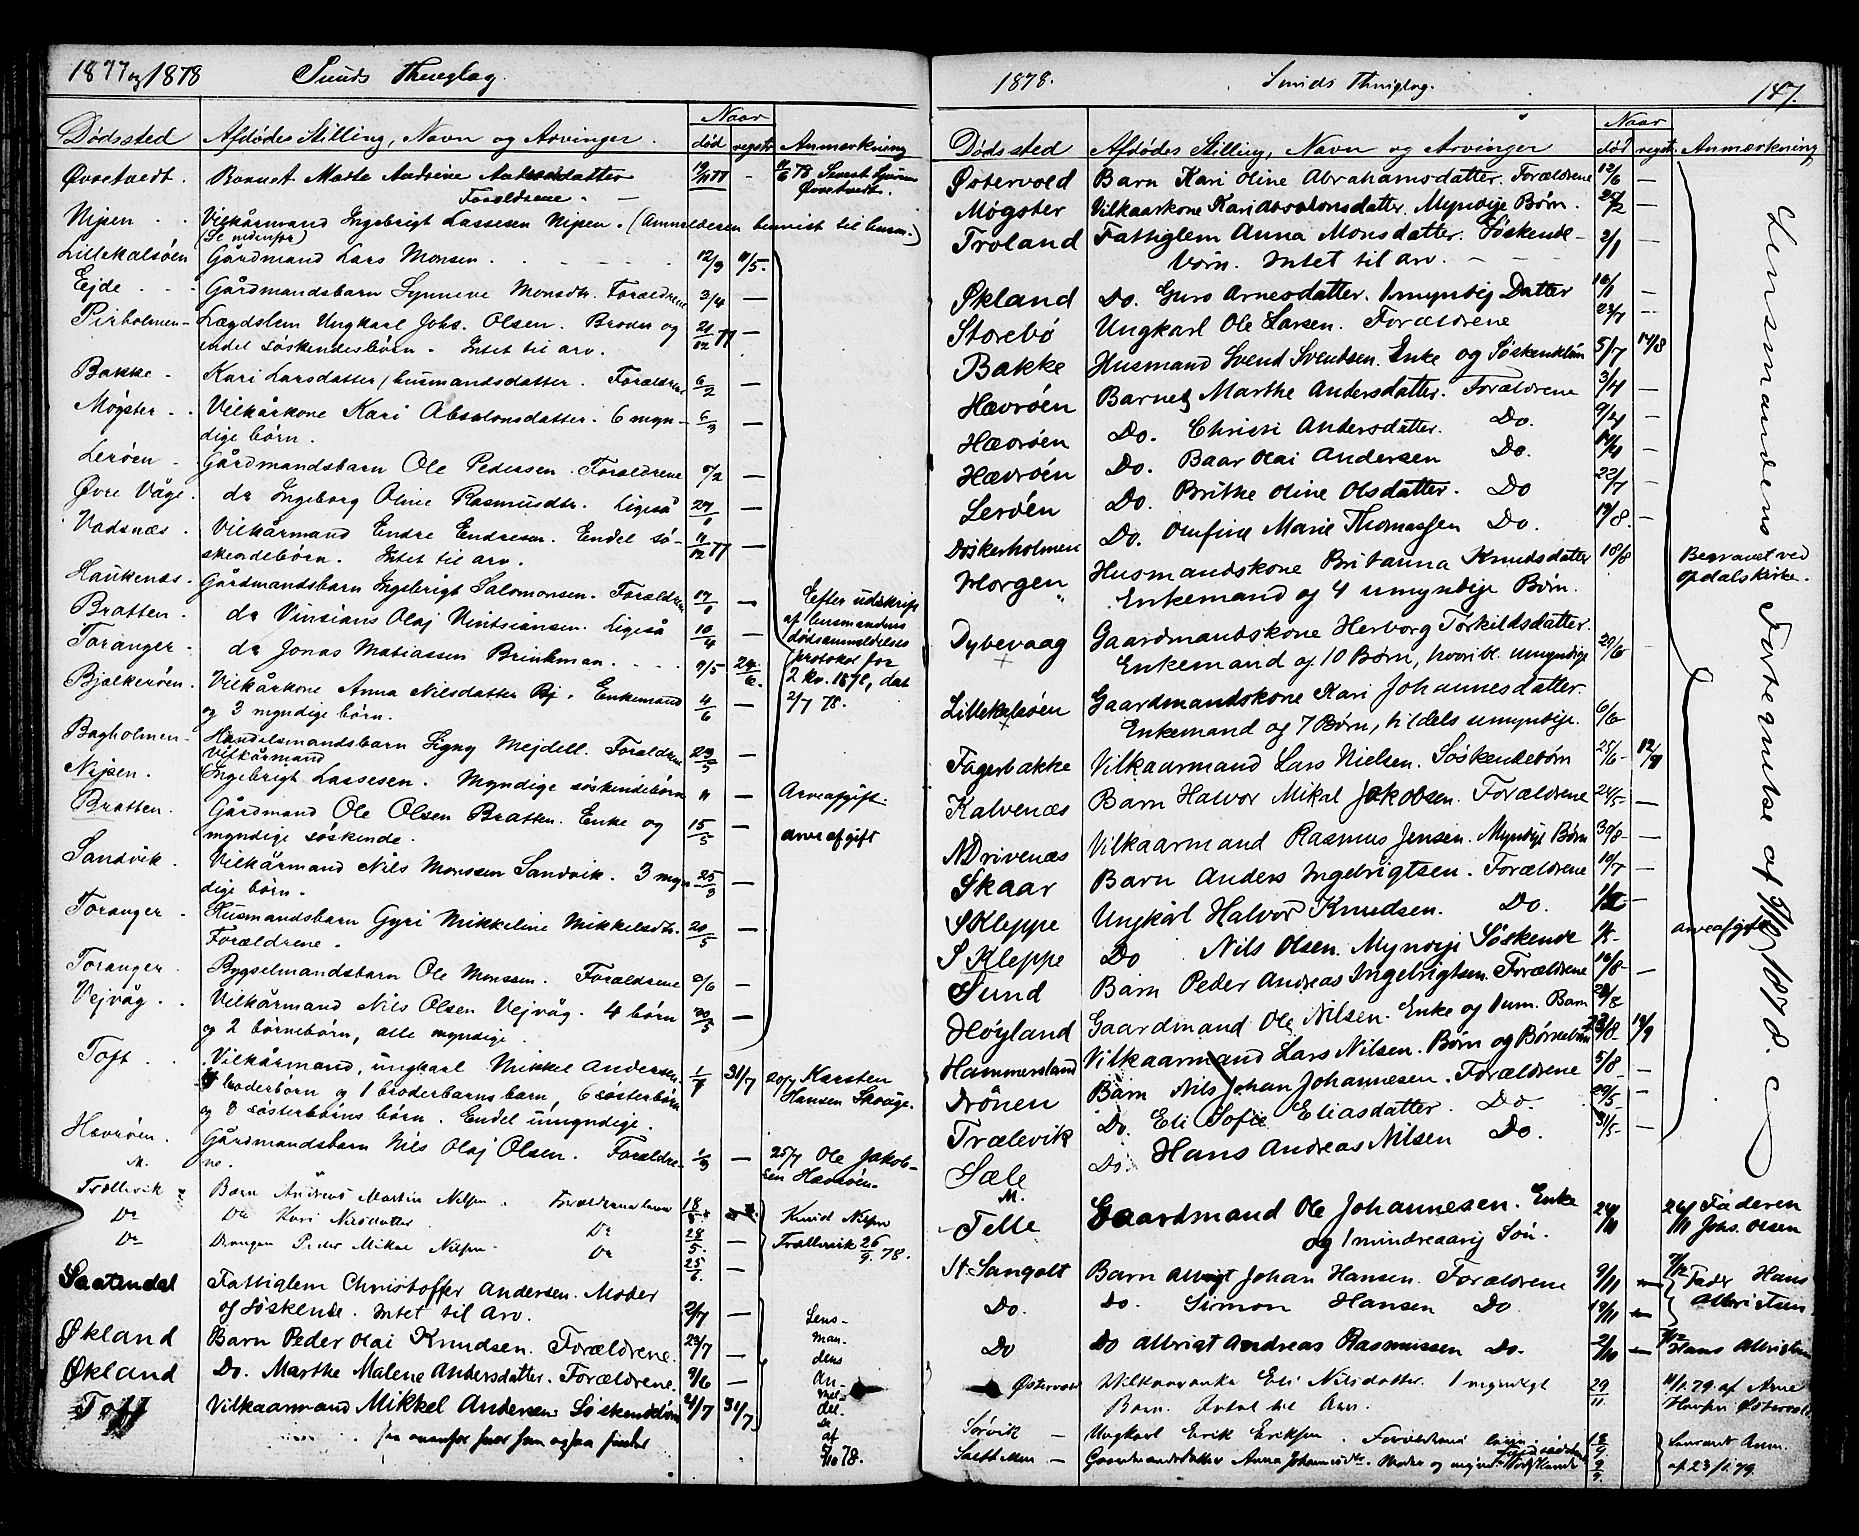 1877 og 1878 Sunds Thinglag.
Naar
Dødssted Afdødes Stilling, Navn og Arvinger. død registr Anmærkning
Øvretvedt. Barnet Marte Andrine
Forældrene. —
Nipen Vilkårmand Ingebrigt Lassesen Nipen. (Anmeldelsen henvist til
(Se nedenfor)
Lillekalsøen Gårdmand Lars Monsen 12/3 11/5.
Ejde Gårdmandsbarn Synneve Monsdtr. Forældrene 3/4 —
Pirholmen Lægdslem Ungkarl Johs. Olsen. Broder og 21/12 77 —
endel søskendesbørn. Intet til arv.
Bakke Kari Larsdatter, husmandsdatter. Forældrene 6/2 —
Møgster Vilkårkone Kari Absalonsdatter. 6 myn- 6/3 —
dige børn.
Lerøen Gårdmandsbarn Ole Pedersen. Forældrene 5/2 —
Øvre Våge. do Ingeborg Oline Rasmusdtr. Ligeså 27/1 —
Vadsnæs. Vilkårmand Endre Endresen. Endel sø- 11/12 77 —
skendebørn. Intet til arv.
Haukenæs. Gårdmandsbarn Ingebrigt Salomonsen. Forældrene 17/1 — Efter udskrift
Bratten. do Vinsians Olaj Vintsiansen. Ligeså 10/4 — af
Toranger do Jonas Matiassen Brinkman. 9/5 24/6. protokol for
Bjelkerøen. Vilkårkone Anna Nilsdatter Bj. Enkemand 4/6 — 2 kv. 1878, dat
og 3 myndige børn. 2/7 78.
Bagholmen Handelsmandsbarn Signy Mejdell. Forældrene 23/5 —
Nipen. Vilkårmand
Ingebrigt Lassesen. Myndige søskendebørn " — Arveafgift.
Bratten. Gårdmand Ole Olsen Bratten. Enke og 15/5 —
myndige søskende. arveafgift
Sandvik. Vilkårmand Nils Monssen Sandvik. 3 myn- 25/3 —
dige børn.
Toranger Husmandsbarn Gyri Mikkeline Mikkelsdtr. 20/5 —
Forældrene.
Toranger Bygselmandsbarn Ole Monssen. Forældrene 2/6 —
Vejvåg. Vilkårmand Nils Olsen Vejvåg. 4 børn 20/5 —
og 2 børnebørn, alle myndige.
Toft Vilkårmand, ungkarl Mikkel Andersen. 1/7 31/7 20/7 Karsten
broderbørn og 1 broderbarns barn, 6 søsterbørn Hansen Skauge.
og 8 søsterbørns børn. Endel umyndige.
Hevrøen. Gårdmandsbarn Nils Olaj Olsen. Forældre- 1/3 — 25/7 Ole Jakob-
M. ne. sen Hævrøen.
Trællevik Barn Andreas Martin Nilsen. Forældrene 18/5 Knud Nilsen
Do Do Kari Nilsdatter Do 28/5. — Trællevik 26/9. 78.
Do Drengen Peder Mikal Nilsen. Do 25/6. —
Saatendal Fattiglem Christoffer Andersen. Moder
og Søskende. Intet til Arv. 2/7 — Lens-
Økland Barn Peder Olai Knudsen. Forældrene. 23/7 — man-
Økland Do. Marthe Malene Andersdatter. Forældrene. 9/6 — dens
Toft Vilkaarmand Mikkel Andersen. Søskendebørn 21/7 31/7
af
5/10 78.

1878. Sunds Thinglag. 147.
Naar
Dødssted Afdødes Stilling, Navn og Arvinger død registr. Anmærkning
Østervold Barn Kari Oline Abrahamsdatter. Forældrene 12/6 —
Møgster Vilkaarkone Kari Absalonsdatter. Myndige Børn. —
Troland Fattiglem Anna Monsdatter. Søskende- 2/1 —
børn. Intet til arv.
Økland Do. Guro Arnesdatter. 1 myndig Datter 16/1 —
Storebø Ungkarl Ole Larsen. Forældrene
Bakke Husmand Svend Svendsen. Enke og Søskendebørn 5/7 14/8
Hævrøen Barnet Marthe Andersdatter. Forældrene 3/4 —
Hævrøen Do. Christi Andersdatter. Do. 9/4 —
Hævrøen Do. Baar Olai Andersen Do. —
Lerøen Do. Brithe Oline Olsdatter. Do 22/7 —
Døskerholmen Do. Olufine Marie Thomassen Do. 19/8. —
Horgen Husmandskone Britanna Knudsdatter 18/8 Begravet ved
Enkemand og 4 umyndige Børn. Opdalskirke.
Dybevaag Gaardmandskone Herborg Torkildsdatter. 20/6 —
Enkemand og 10 Børn, hvoribl. umyndige
Lillekalsøen Gaardmandskone Kari Johannesdatter. 6/6
Enkemand og 7 Børn, tildels umyndige.
Fagerbakke Vilkaarmand Lars Nielsen. Søskendebørn 25/6 12/9
Kalvenæs Barn Halvor Mikal Jakobsen. Forældrene 24/5 —
N Drivenæs Vilkaarmand Rasmus Jensen. Myndige Børn 30/8 —
Skaar Barn Anders Ingebrigtsen. Forældrene 10/7 —
S Kleppe Ungkarl Halvor Knudsen. Do. —
S Kleppe Do Nils Olsen. Myndige Søskende arveafgift
Sund Barn Peder Andreas Ingebrigtsen. Forældrene 16/8 —
Høyland Gaardmand Ole Nilsen. Enke og 1 um. Barn 28/8
Hammersland Vilkaarmand Lars Nilsen. Børn og Børnebørn 23/8 14/9
Drönen Barn Nils Johan Johannesen. Forældrene 5/8 —
Trælevik Do. Eli Sofie Eliasdatter. Do. 29/5 —
Sæle Do. Hans Andreas Nilsen Do. 31/5 —
Lensmandens Fortegnelse af 5/10 1878.
M.
Telle Gaardmand Ole Johannesen. Enke 24/11 26/11 Faderen
og 1 mindreaarig Søn. Johs. Olsen
St. Sangolt Barn Albrigt Johan Hansen. Forældrene 9/11 — 7/12 Fader Hans
Do. Do. Simon Hansen Do. 19/11 — Albrigtsen
Do Do Albrigt Andreas Rasmussen Do. 2/10 — 7/12 Hans Albrigtsen
Østervold Vilkaarenke Eli Nilsdatter. 1 myndigt 29/11. 11/1 79 af Arne
Barn. Intet til Arv. Hansen Østervold
Sørvik — Ungkarl Erik Eriksen. Forældrene 18/9
— Gaardmandsdatter Anna af 23/1.79.